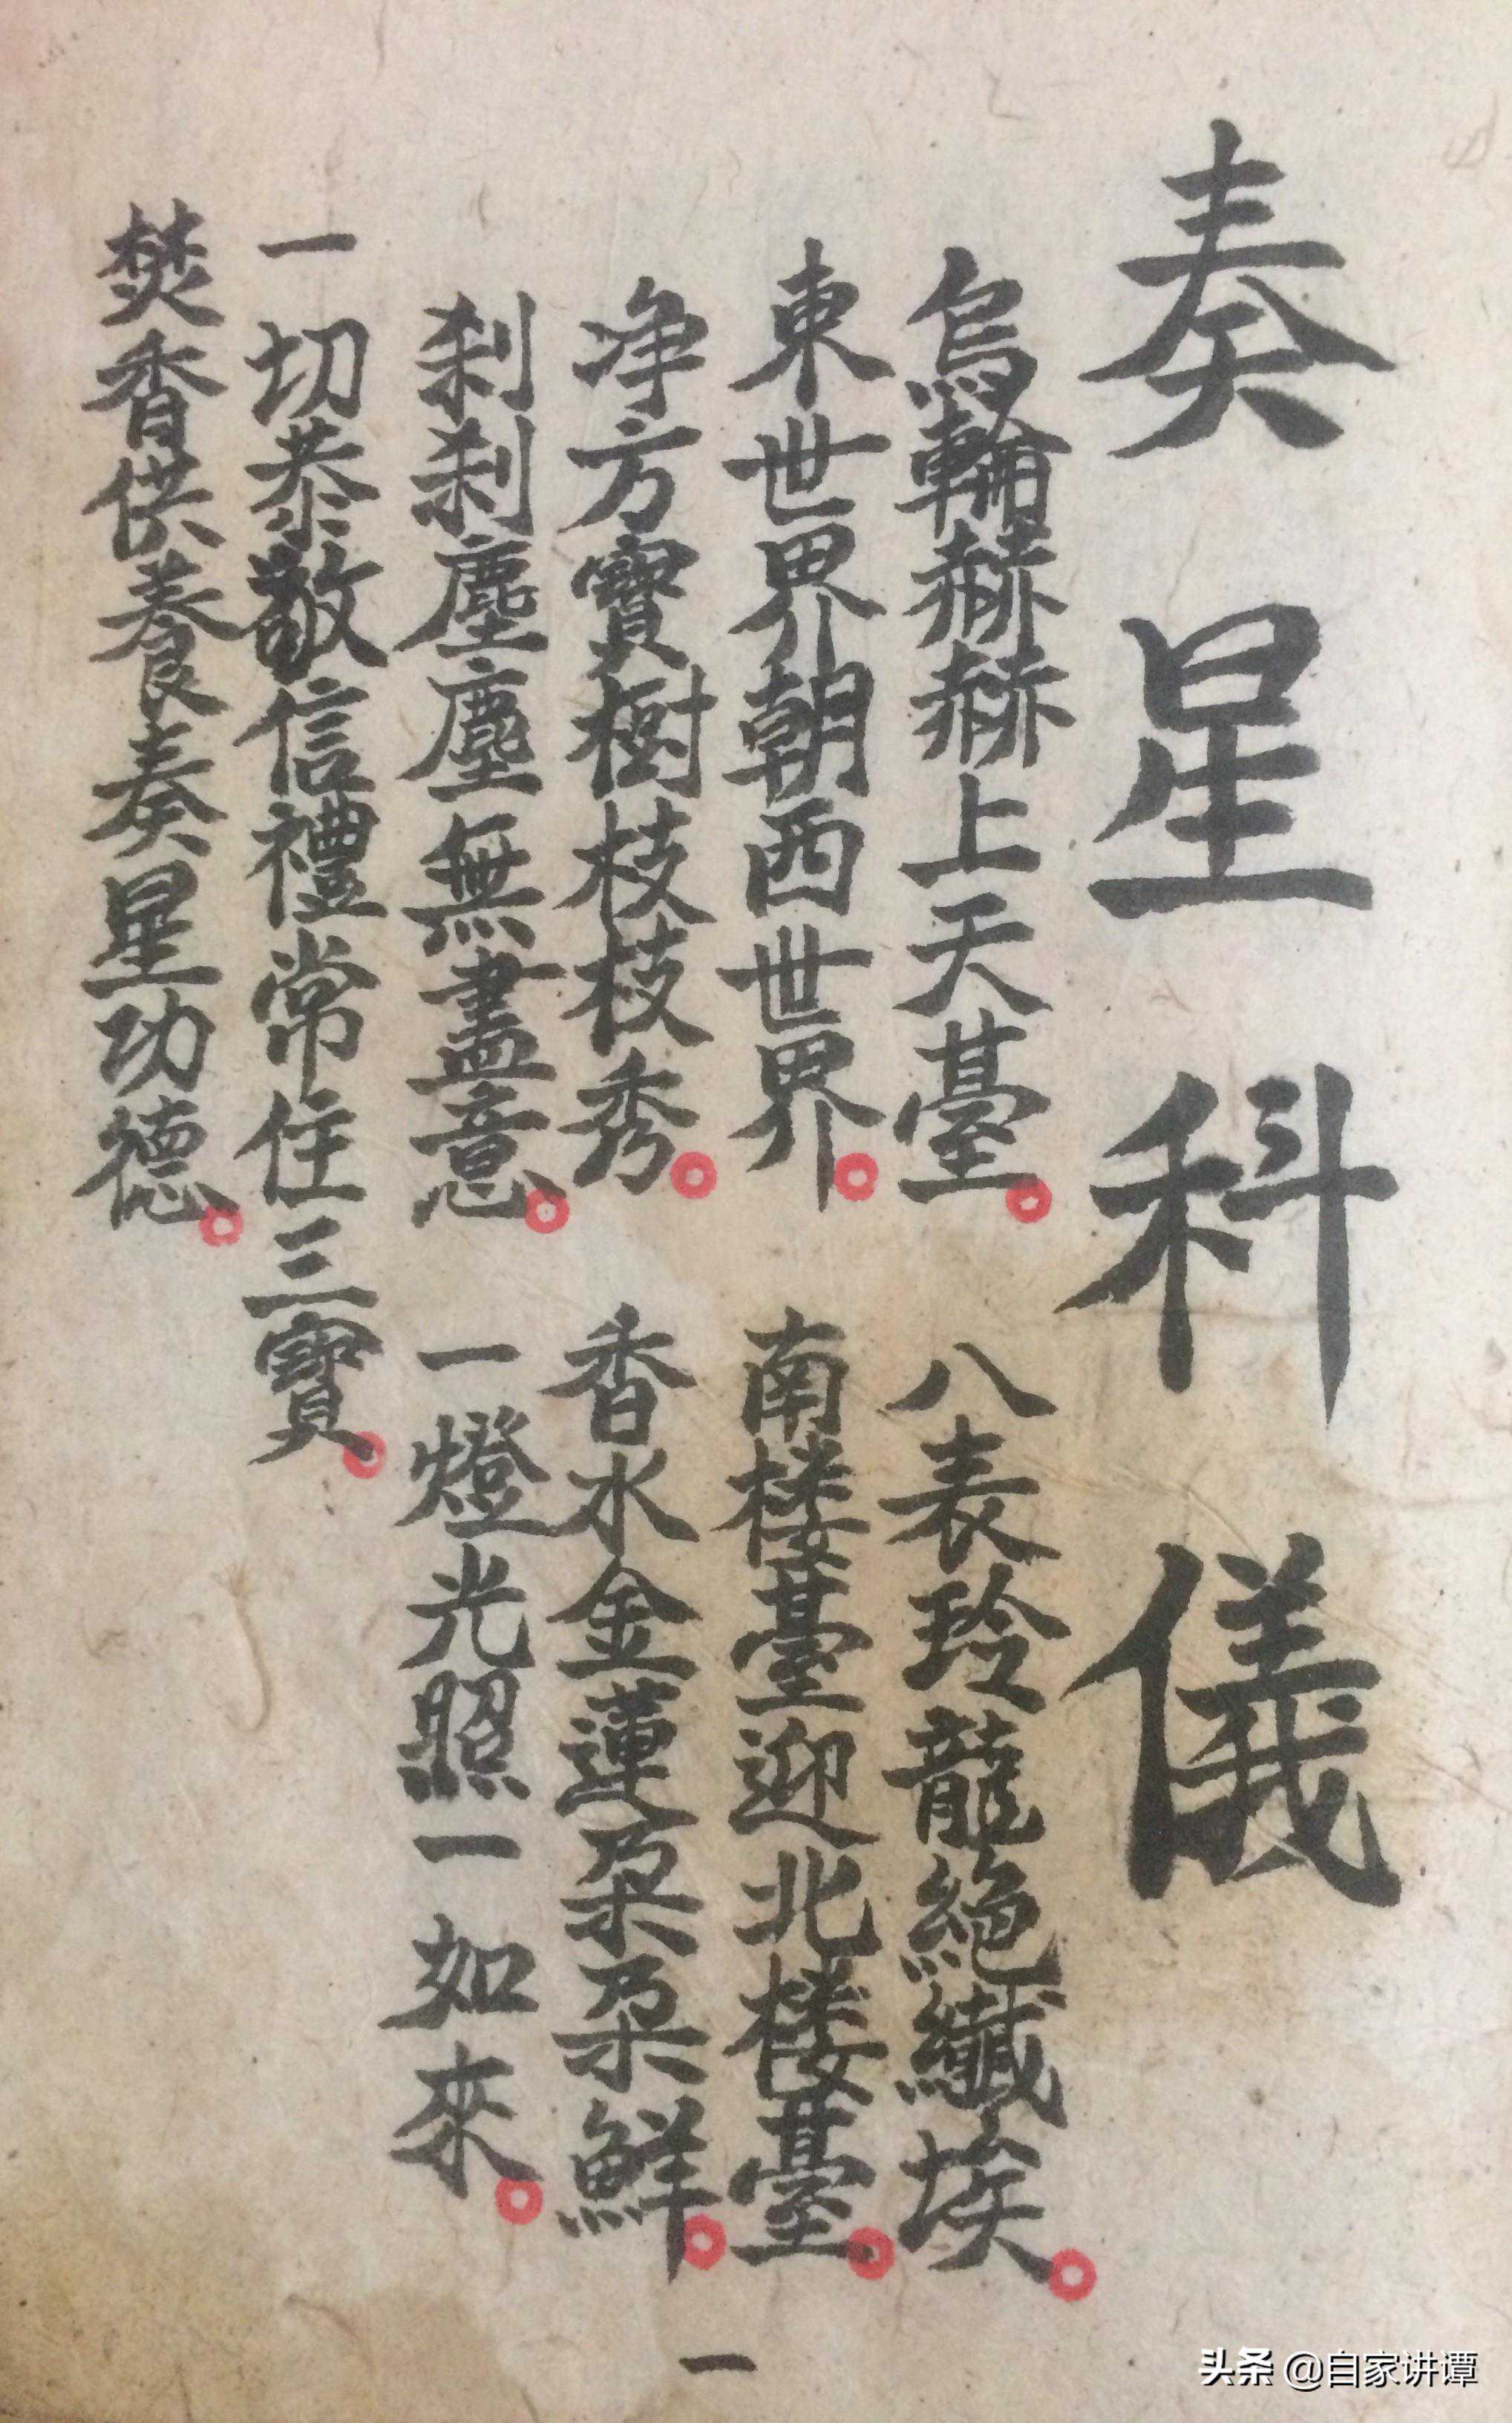 奏星科儀
烏輪赫赫上天臺。八表玲龍絕纖埃。
東世界朝西世界。南楼臺迎北楼臺。
净方寶樹枝枝秀。香水金蓮朶朶鮮。
刹刹塵塵無盡意。一燈光照一如來。
一切恭敬信禮常住三寶。
焚香供養奏星功德。
一
头条 @自家讲谭